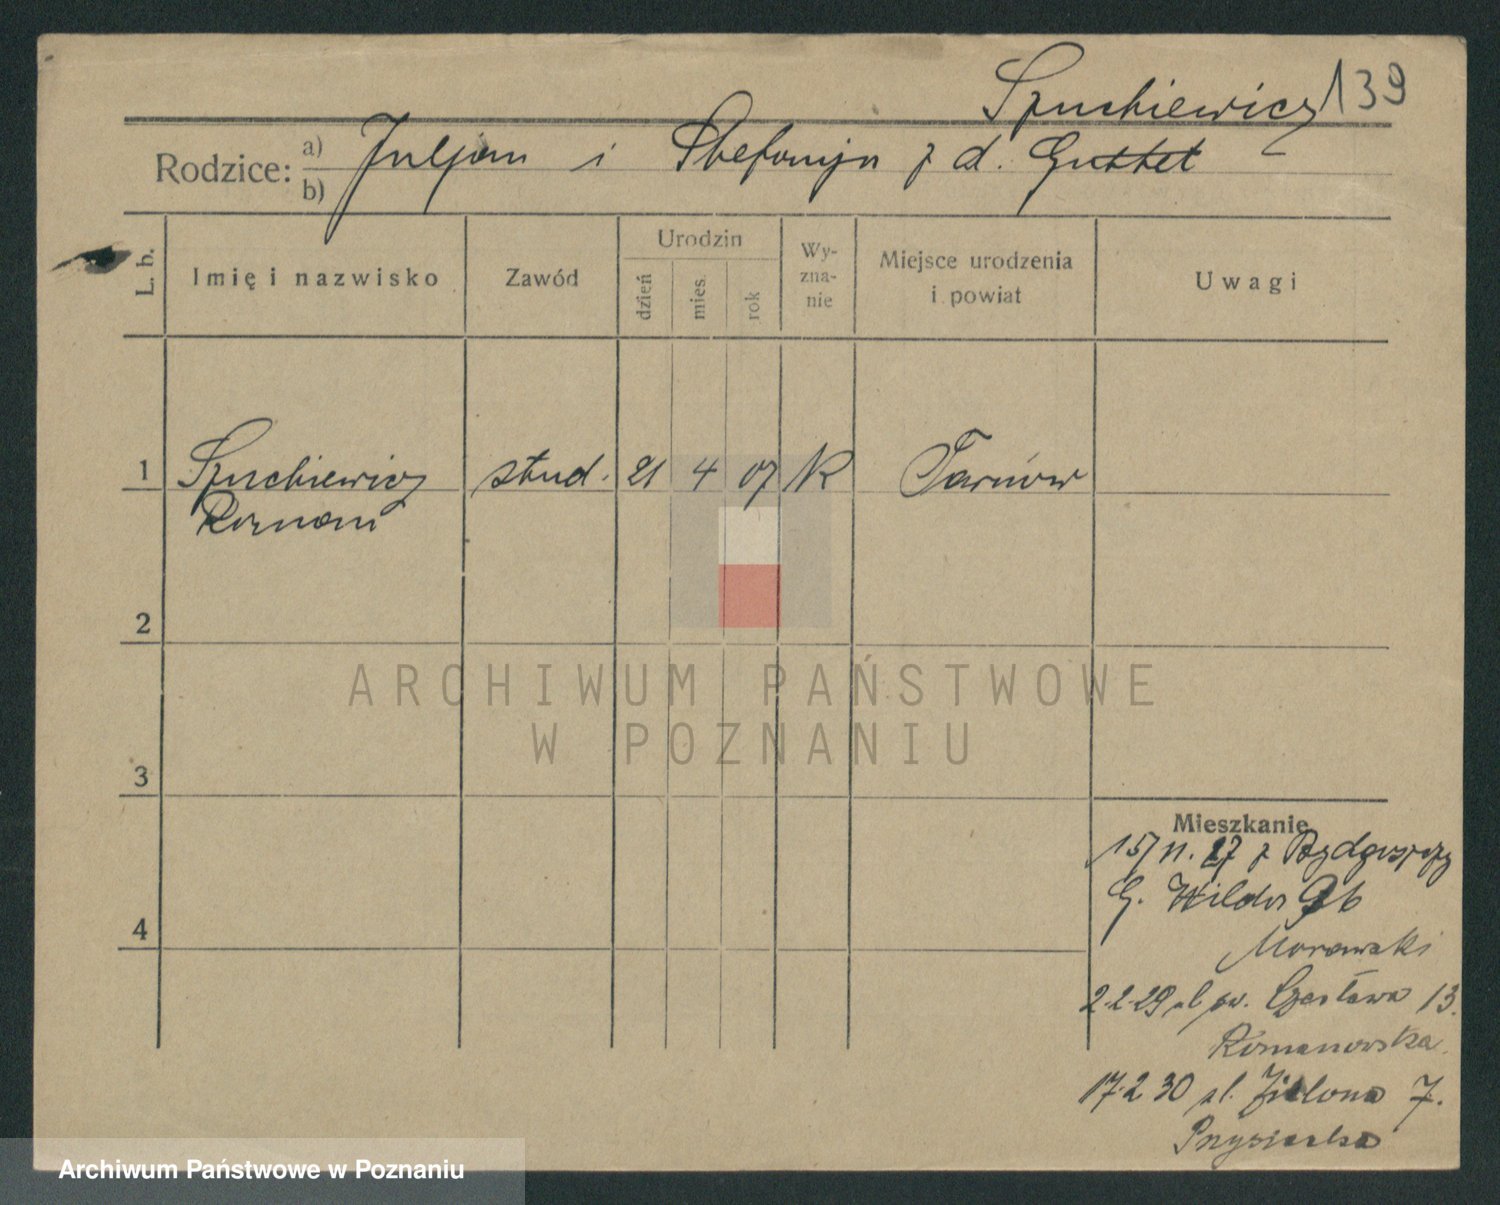 Szuchiewicz 139
Rodzice: a) b) Juljan i Stefanja z d. Guttet
L. b.
Imię i nazwisko
Zawód
Urodzin
dzień
mies.
rok
Wy-
zna-
nie
Miejsce urodzenia
i powiat
Uwagi
1 Szuchiewicz stud. 21 4 07 K Tarnów
Roman
2
ARCHIWUM PAŃSTWOWE
W POZNANIU
3
Mieszkanie
15/11. 27 z Bydgoszczy
G. Wilda 96
4
Morawski
2.2.29 ul św. Czesława 13.
Romanowska
17.2 30 ul. Zielona 7.
Archiwum Państwowe w Poznaniu